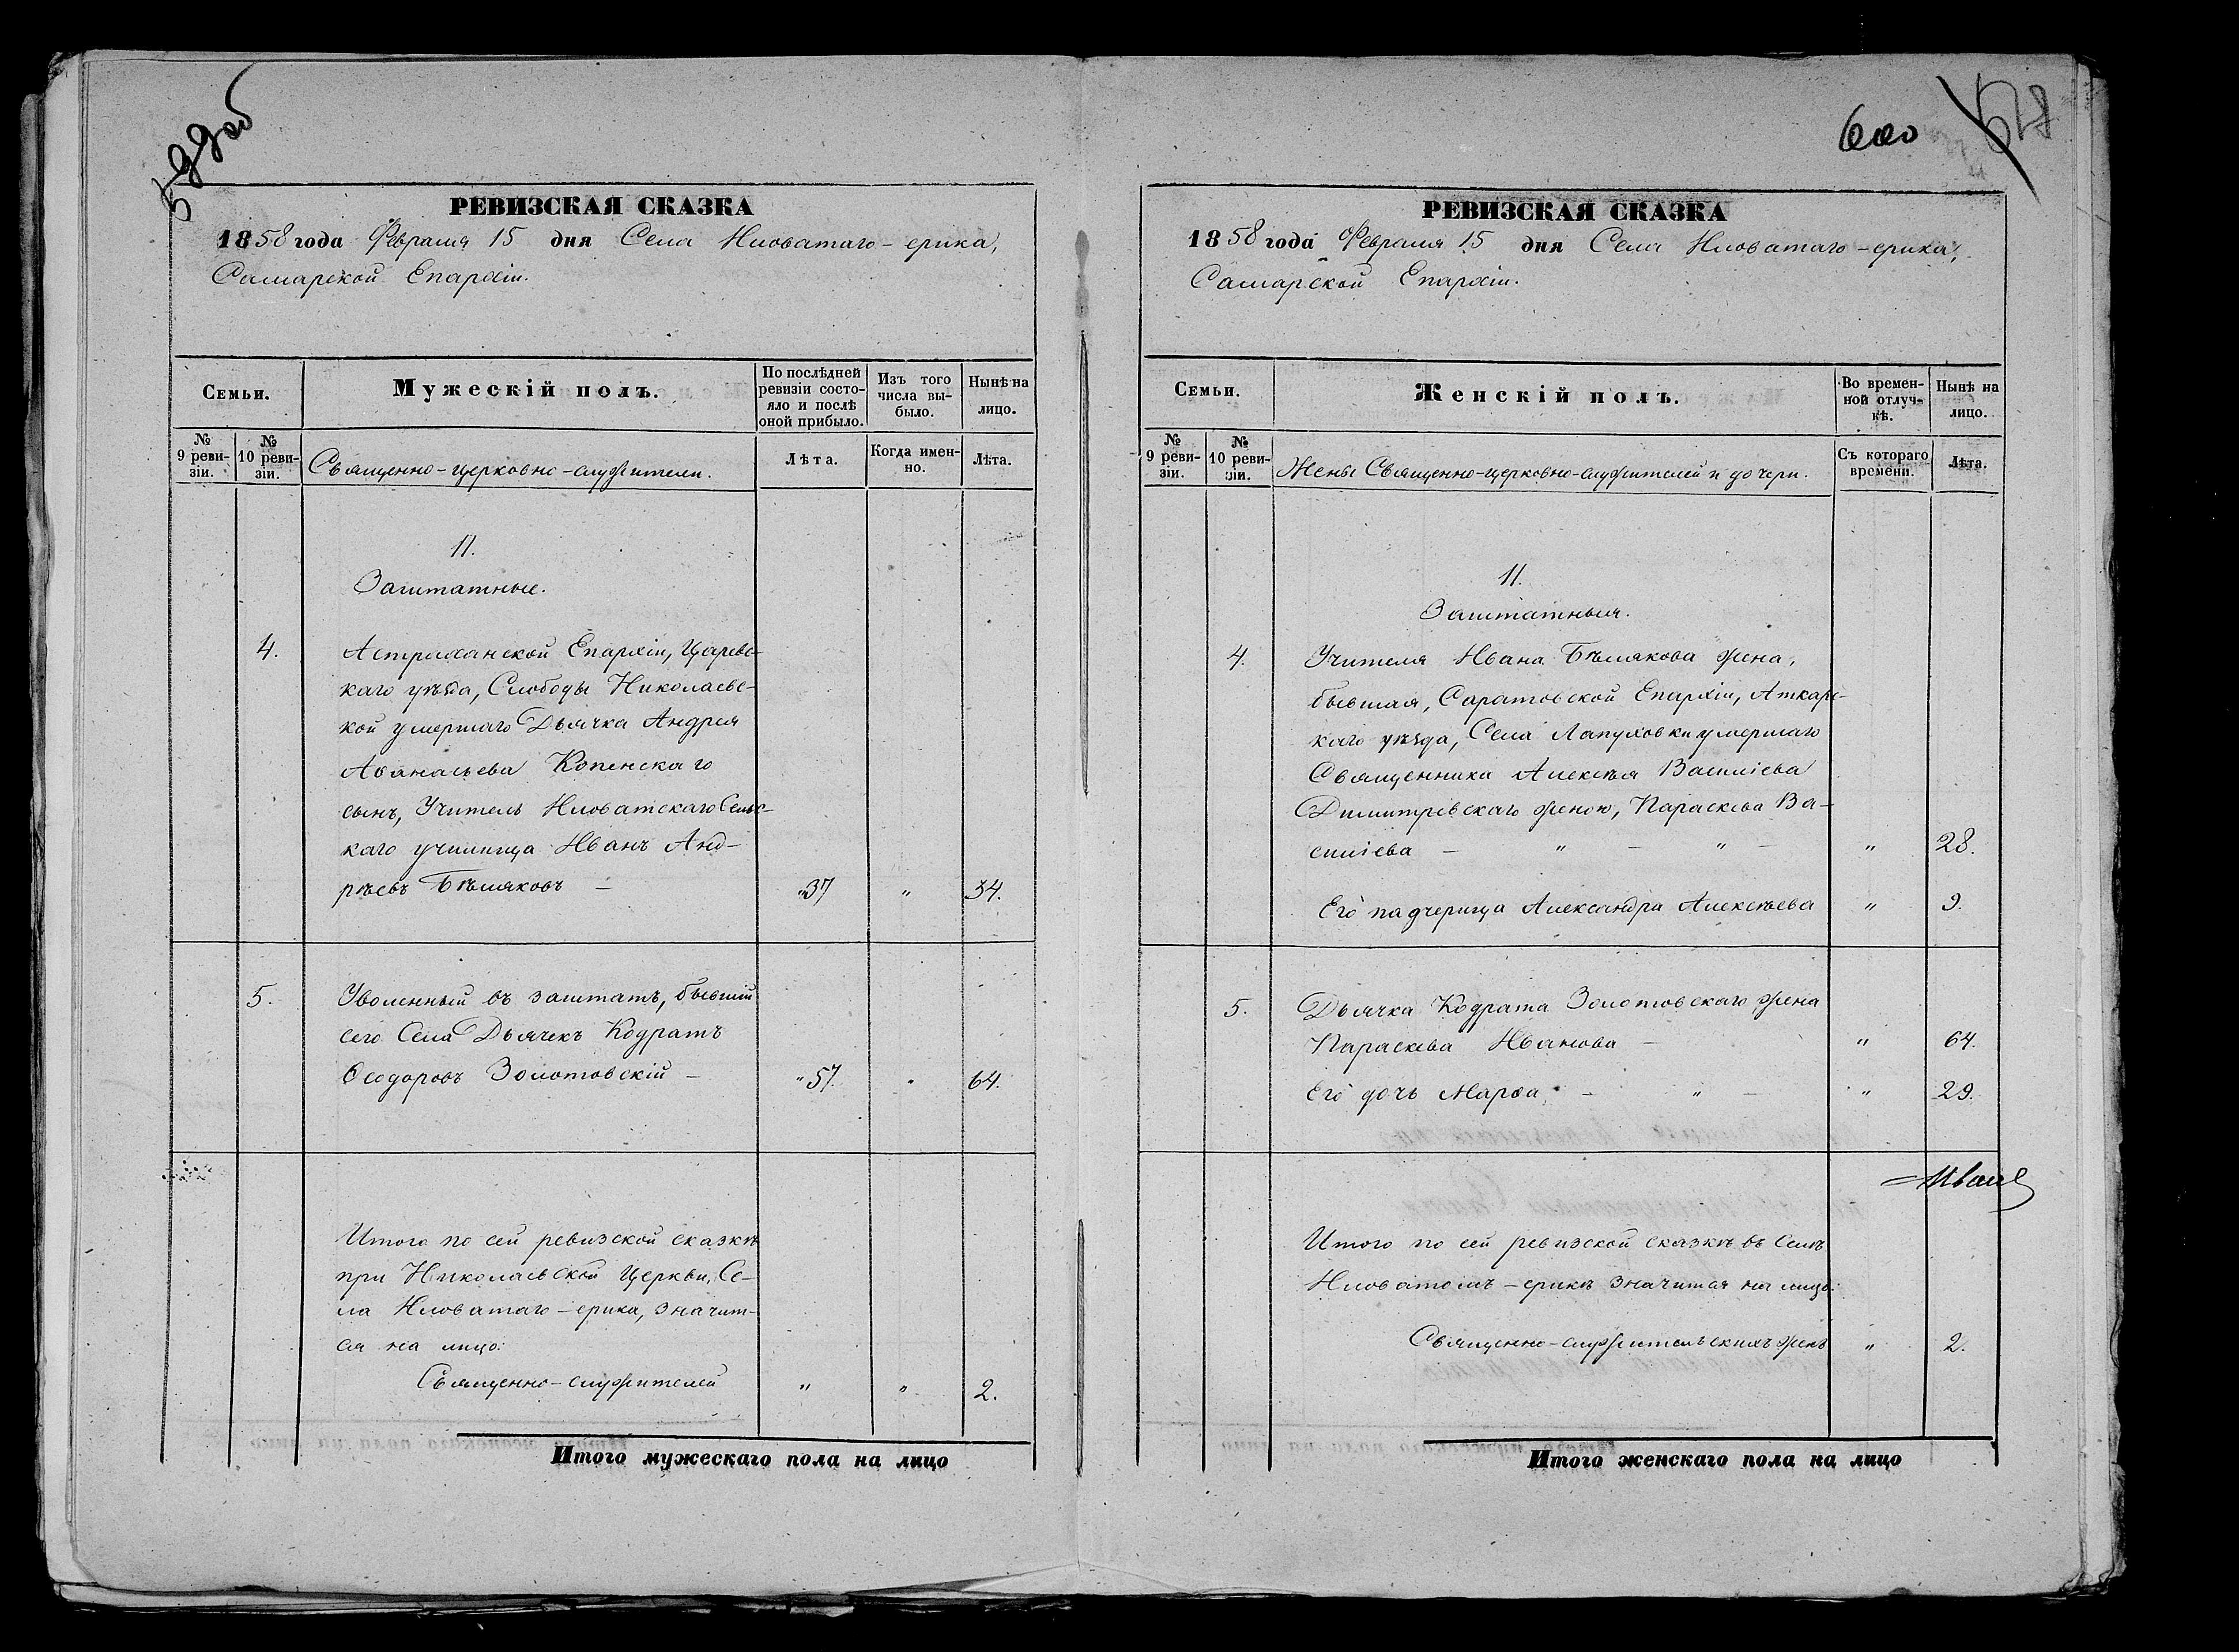 РЕВИЗСКАЯ СКАЗКА
1858 года Февраля 15 дня Села Иловатаго-ерика,
Самарской Епархіи.
Семьи.
Мужескій полъ.
По послѣдней ревизіи состояло и послѣ оной прибыло.
Изъ того числа выбыло.
Нынѣ на лицо.
№ 9 ревизіи.
№ 10 ревизіи.
Священно-церковно-служители.
Лѣта.
Когда именно.
Лѣта.
II.
Заштатные.
4. Астраханской Епархіи, Царевс-
каго уѣзда, Слободы Николаевс-
кой умершаго Дьячка Андрея
Аѳанасьева Копенскаго
сынъ, Учитель Иловатскаго Сельс-
каго училища Иванъ Анд-
рѣевъ Бѣляковъ – „37 „ 34.
5. Уволенный въ заштатъ, бывшій
сего Села Дьячекъ Кодратъ
Ѳеодоровъ Золотовскій – „57. „ 64.
Итого по сей ревизской сказкѣ
при Николаевской Церкви, Се-
ла Иловатаго-ерика, значит-
ся на лицо:
Священно-служителей „ „ 2.
Итого мужескаго пола на лицо
600
РЕВИЗСКАЯ СКАЗКА
1858 года Февраля 15 дня Села Иловатаго-ерика,
Самарской Епархіи.
Семьи.
Женскій полъ.
Во временной отлучкѣ.
Нынѣ на лицо.
№ 9 ревизіи.
№ 10 ревизіи.
Жены Священно-церковно-служителей и дочери.
Съ котораго времени.
Лѣта.
II.
Заштатныя.
4. Учителя Ивана Бѣлякова жена,
бывшая, Саратовской Епархіи, Аткарс-
каго уѣзда, Села Лапуховки умершаго
Священника Алексѣя Василіева
Димитревскаго женою, Параскева Ва-
силіева – „ – „ – „ 28.
Его падчерица Александра Алексѣева „ 9.
5. Дьячка Кодрата Золотовскаго жена
Параскева Иванова – „ 64.
Его дочь Марѳа, – „ – „ 29.
Итого по сей ревизской сказкѣ въ Селѣ
Иловатомъ-ерикѣ значится на лицо:
Священно-служительскихъ женъ „ 2.
Итого женскаго пола на лицо